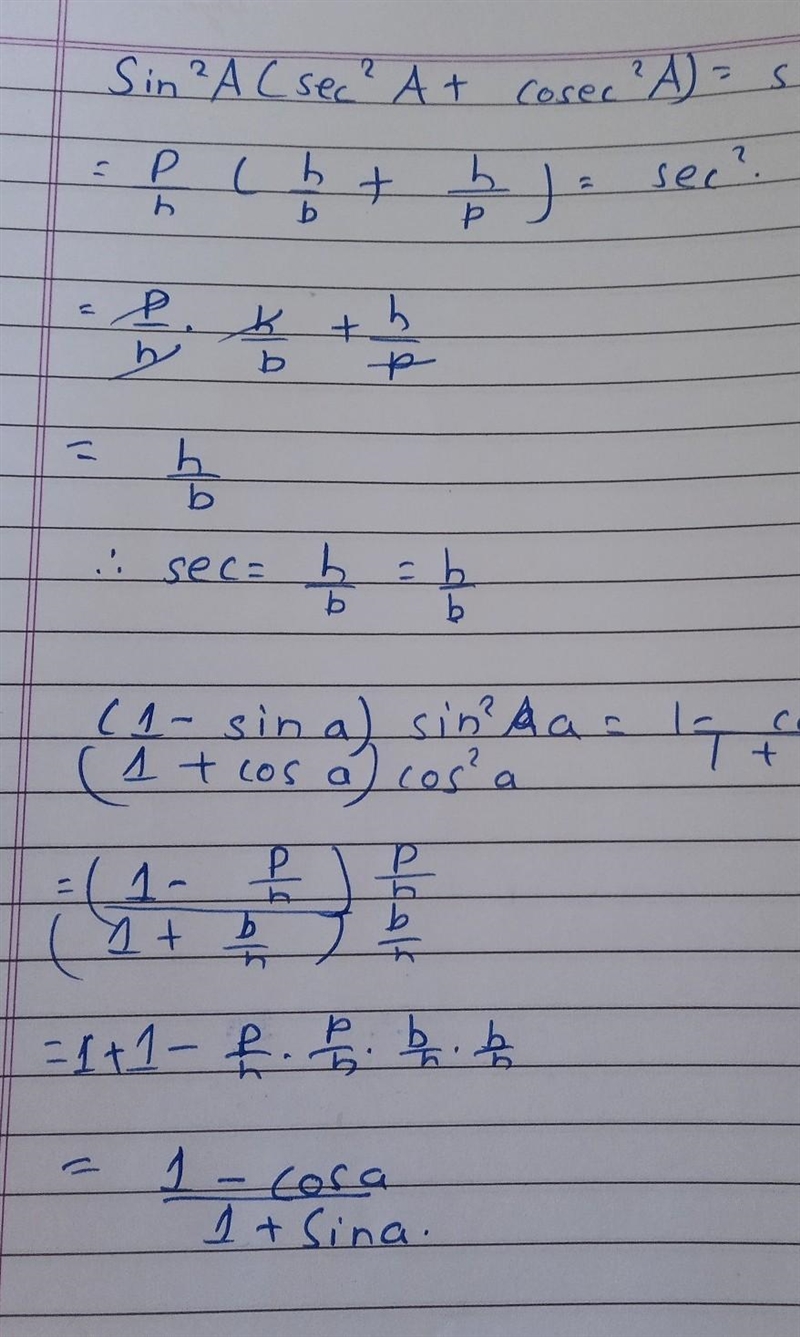 Sin²A (sec² A + cosec² A) = s
= p/h ( h/b + h/p ) = sec².
= p/h . h/b + h/p
= h/b
∴ sec = h/b = h/b
(1 - sin a) sin² a = 1 - co
(1 + cos a) cos² a   1 +
= (1 - p/h) p/h
(1 + b/h) b/h
= 1 + 1 - p/h . p/h . b/h . b/h
= 1 - cos a
1 + sin a.